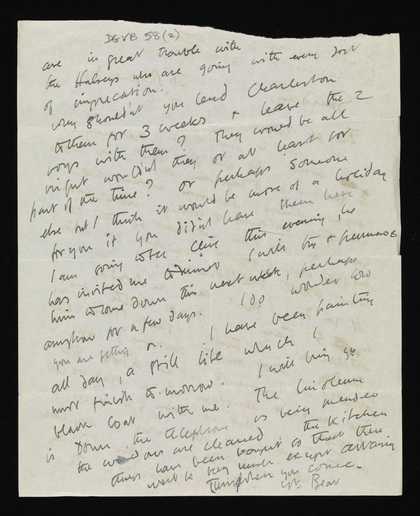 DG VB 58(2)
are in great trouble with
the Halseys who are going with every sort
of imprecation.
why shouldn't you lend Charleston
to them for 3 weeks & leave the 2
boys with them? They would be all
right wouldn't they or at least for
part of the time? or perhaps someone
else but I think it would be more of a holiday
for you if you didn't have them here
I am going to see Clive this evening he
has invited me to dinner I will try & persuade
him to come down this next week, perhaps
anyhow for a few days. I do wonder how
you are getting on. I have been painting
all day, a still life which I
must finish to-morrow. I will bring yr
black coat with me. The linoleum
is down the telephone is being mended
the windows are cleaned the kitchen
things have been bought so that there
won't be very much except
when you come.
yr Bear